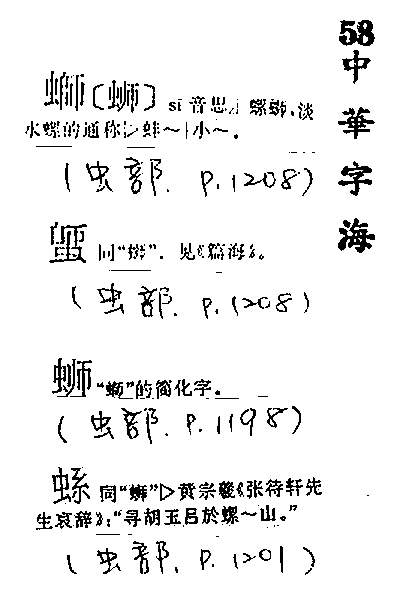 58
中華字海
螄〔蛳〕 sī 音思。螺螄,淡
水螺的通称▷蛙~|小~。
(虫部. P.1208)
同“螄”。见《篇海》。
(虫部. P.1208)
蛳 “螄”的简化字。
(虫部. P.1198)
同“螄”▷黄宗羲《张待轩先
生哀辞》:“寻胡玉吕於螺~山。”
(虫部. P.1201)